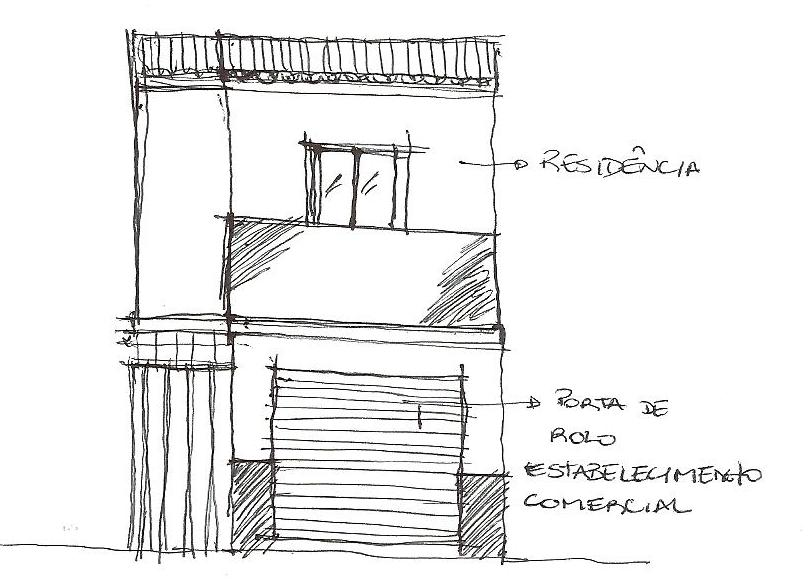 RESIDÊNCIA
PORTA DE
ROLO
ESTABELECIMENTO
COMERCIAL